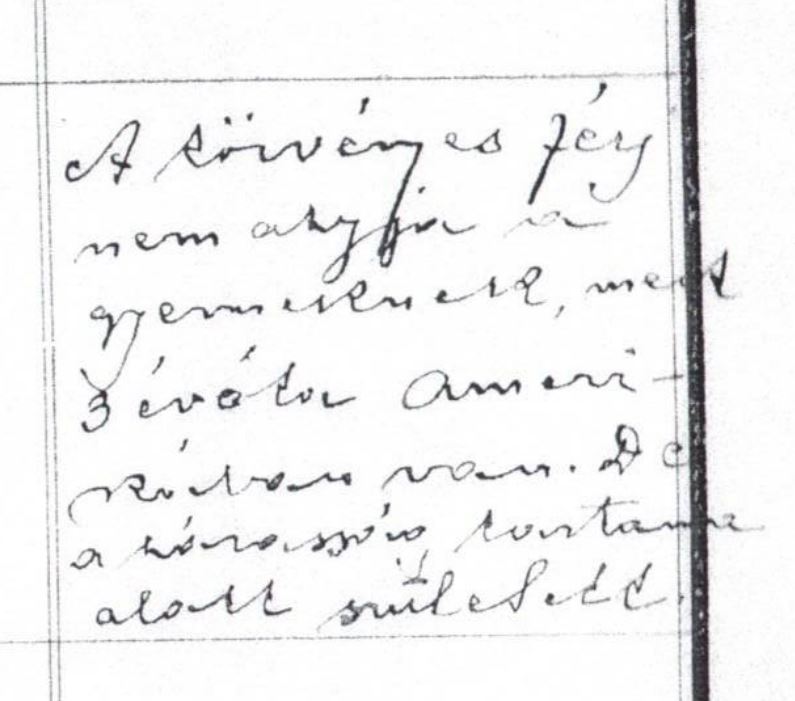 A törvényes férj
nem atyja a
gyermeknek, mert
3 év óta Ameri-
kában van. De
a házasság tartama
alatt született.